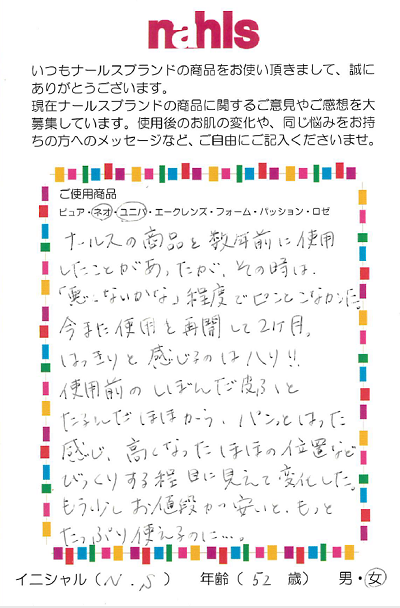 nahls
いつもナールスブランドの商品をお使い頂きまして、誠に
ありがとうございます。
現在ナールスブランドの商品に関するご意見やご感想を大
募集しています。使用後のお肌の変化や、同じ悩みをお持
ちの方へのメッセージなど、ご自由にご記入くださいませ。
ご使用商品
ピュア・ネオ・ユニバ・エークレンズ・フォーム・パッション・ロゼ
ナールスの商品を数年前に使用
したことがあったが、その時は、
「悪くないかな」程度でピンとこなかった。
今また使用を再開して2ヶ月。
はっきりと感じるのはハリ!!
使用前のしぼんだ皮ふと
たるんだほほから、パンとはった
感じ、高くなったほほの位置など
びっくりする程目に見えて変化した。
もう少しお値段が安いと、もっと
たっぷり使えるのに…。
イニシャル(N.S) 年齢(52歳) 男・女